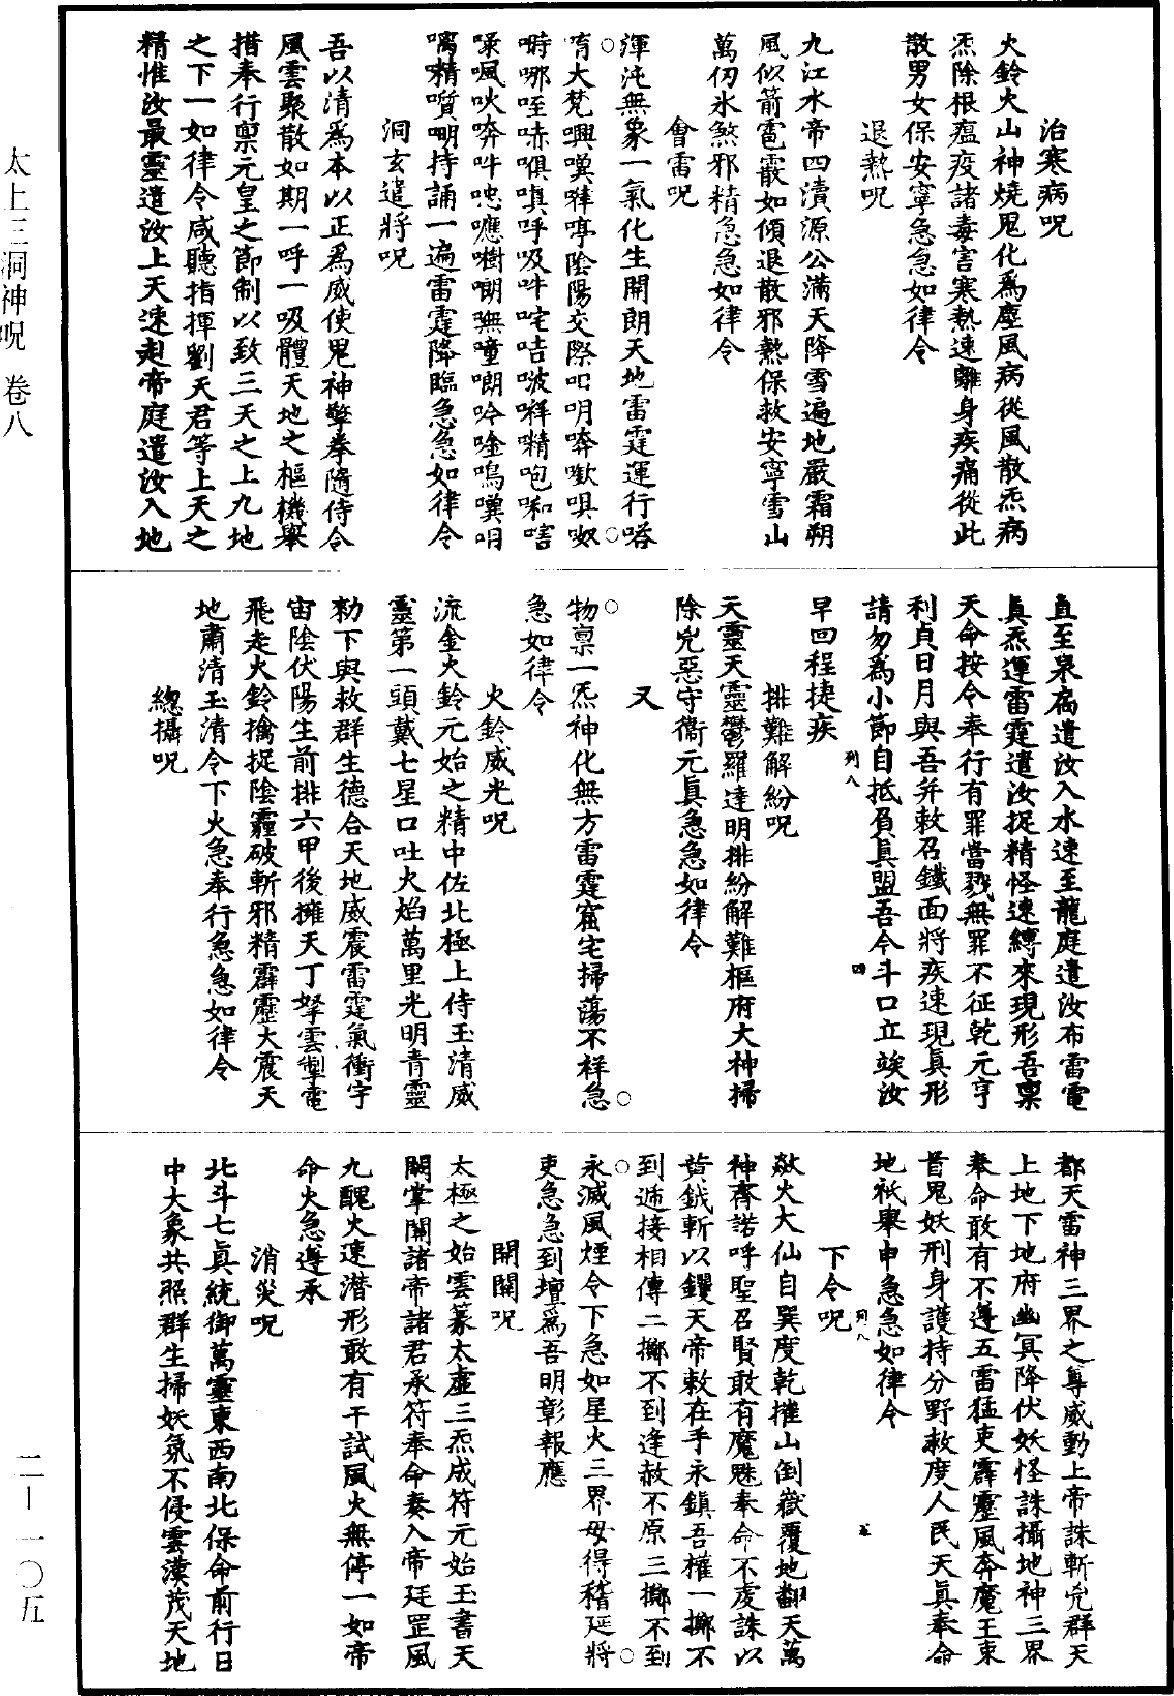 太上三洞神呪 卷八
二—一〇五
治寒病呪
火鈴火山神燒鬼化爲塵風病從風散炁病
炁除根瘟疫諸毒害寒熱速離身疾痛從此
散男女保安寧急急如律令
退熱呪
九江水帝四瀆源公滿天降雪遍地嚴霜朔
風似箭雹霰如傾退散邪熱保救安寧雪山
萬仞氷煞邪精急急如律令
會雷呪
渾沌無象一氣化生開朗天地雷霆運行
大梵陰陽交際
呼吸
持誦一遍雷霆降臨急急如律令
洞玄遣將呪
吾以清爲本以正爲威使鬼神擎拳隨侍令
風雲聚散如期一呼一吸體天地之樞機舉
措奉行禀元皇之節制以致三天之上九地
之下一如律令咸聽指揮劉天君等上天之
精惟汝最靈遣汝上天速赴帝庭遣汝入地
直至泉扃遣汝入水速至龍庭遣汝布雷電
眞炁運雷霆遣汝捉精怪速縛來現形吾禀
天命按令奉行有罪當戮無罪不征乾元亨
利貞日月與吾并敕召鐵面將疾速現眞形
請勿爲小節自抵負眞盟吾今斗口立竢汝
早回程捷疾
列八
四
排難解紛呪
天靈天靈鬱羅達明排紛解難樞府大神掃
除兇惡守衞元眞急急如律令
又
物禀一炁神化無方雷霆窟宅掃蕩不祥急
急如律令
火鈴威光呪
流金火鈴元始之精中佐北極上侍玉清威
靈第一頭戴七星口吐火焰萬里光明青靈
勑下與救群生德合天地威震雷霆氣衝宇
宙陰伏陽生前排六甲後擁天丁拏雲掣電
飛走火鈴擒捉陰霾破斬邪精霹靂大震天
地肅清玉清令下火急奉行急急如律令
總攝呪
都天雷神三界之尊威動上帝誅斬兇群天
上地下地府幽冥降伏妖怪誅攝地神三界
奉命敢有不遵五雷猛吏霹靂風奔魔王束
首鬼妖刑身護持分野救度人民天眞奉命
地祇畢申急急如律令
列八
五
下令呪
歘火大仙自巽度乾摧山倒嶽覆地翻天萬
神齊諾呼聖召賢敢有魔魅奉命不虔誅以
黄鉞斬以鑊天帝敕在手永鎮吾權一擲不
到遞接相傳二擲不到逢赦不原三擲不到
永滅風煙令下急如星火三界毋得稽延將
吏急急到壇爲吾明彰報應
開關呪
太極之始雲篆太虛三炁成符元始玉書天
關掌闢諸帝諸君承符奉命奏入帝廷罡風
九醜火速潛形敢有干試風火無停一如帝
命火急遵承
消災呪
北斗七眞統御萬靈東西南北保命前行日
中大象共照群生掃妖氛不侵雲漢茂天地